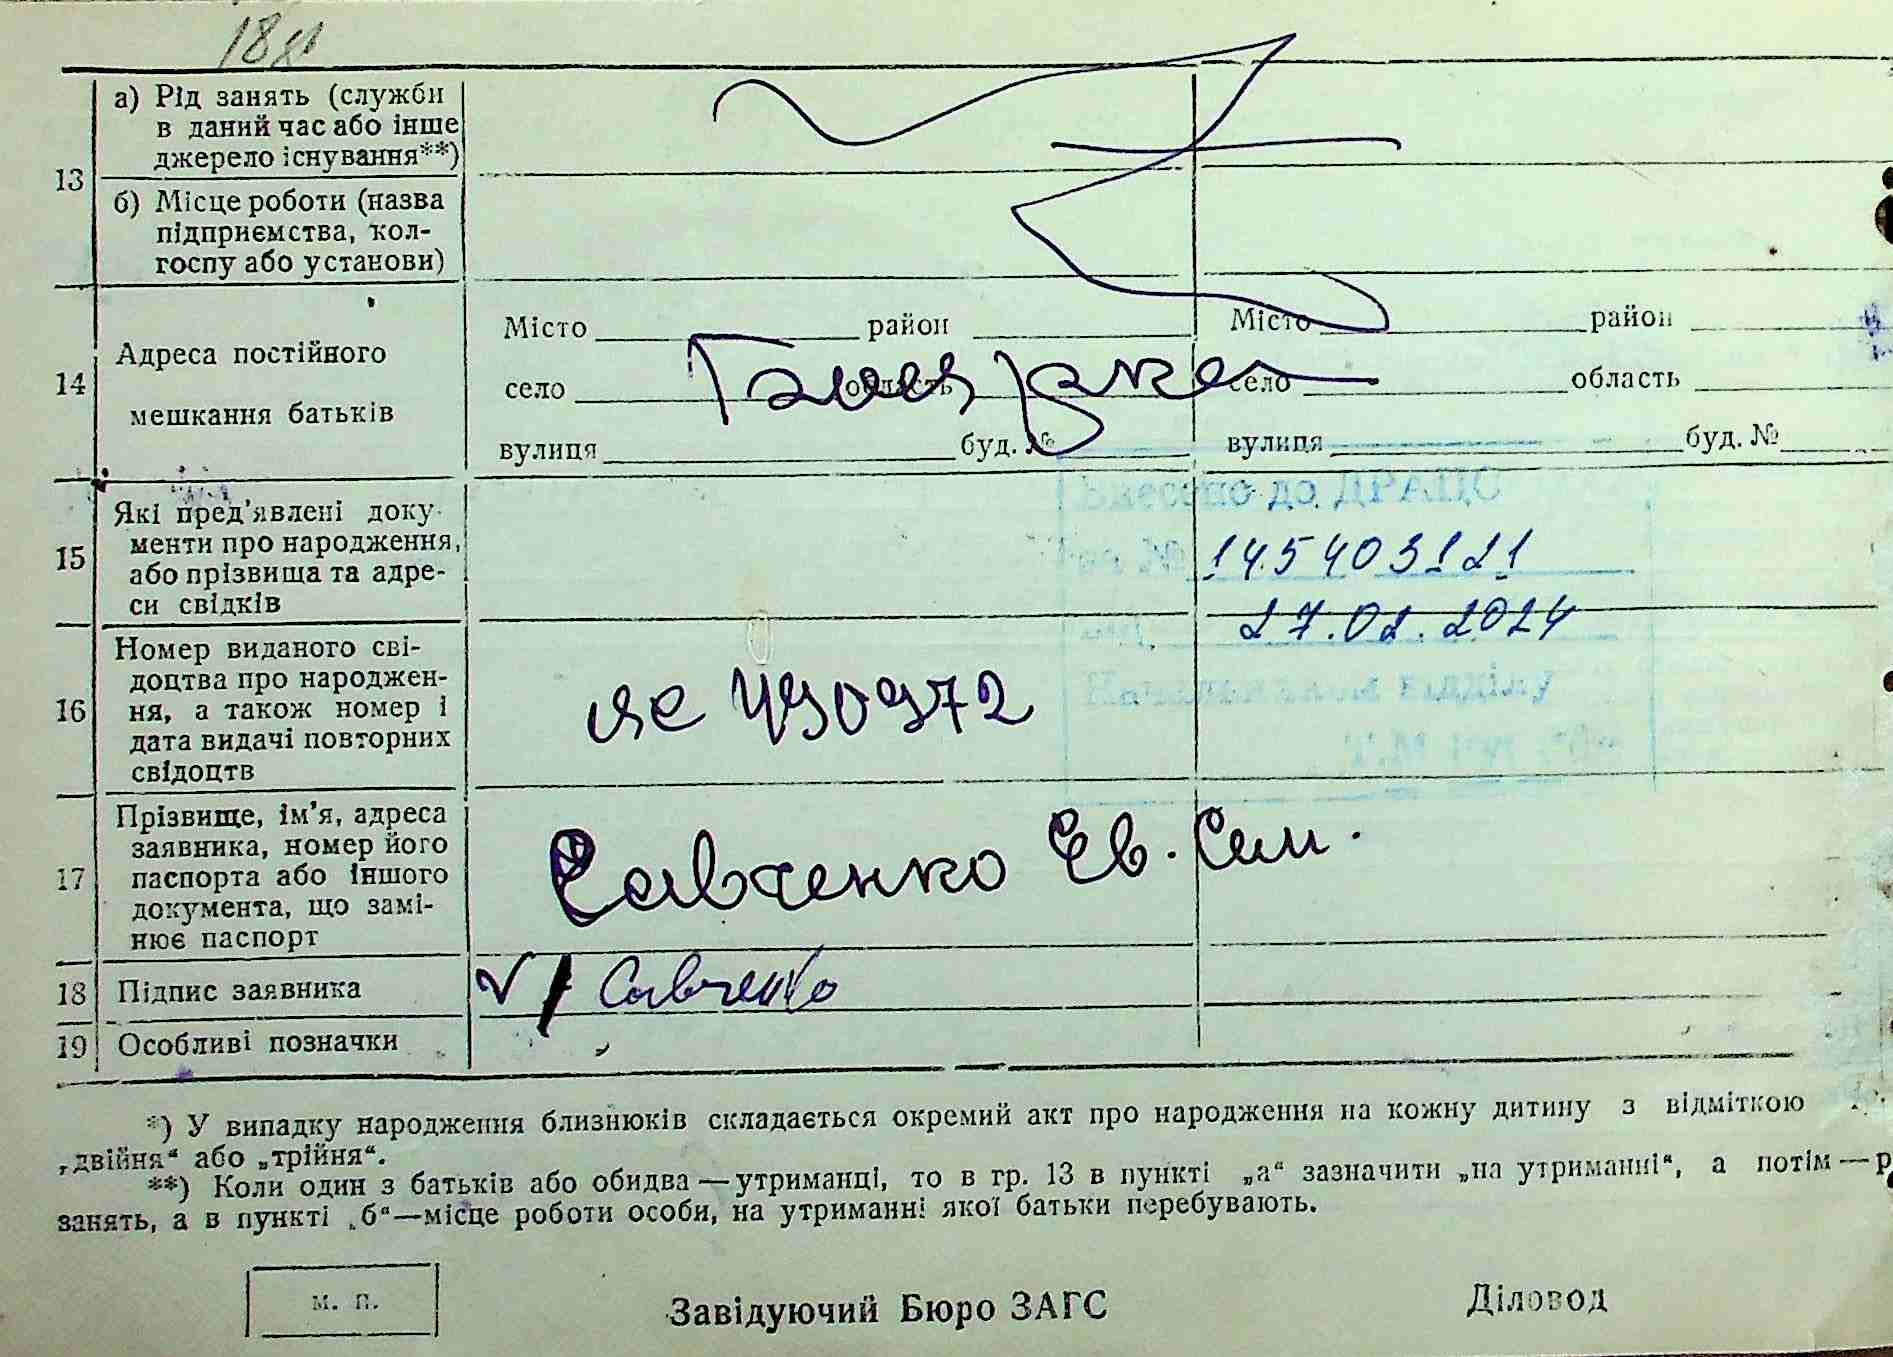 а) Рід занять (служби
в даний час або інше
джерело існування**)
13
б) Місце роботи (назва
підприємства, кол-
госпу або установи)
Місто район Місто район
14 Адреса постійного
мешкання батьків
село область село область
вулиця буд. № вулиця буд. №
Внесено до ДРАЦС
15 Які пред'явлені доку-
менти про народження,
або прізвища та адре-
си свідків
№ 145403121
27.02.2024
16 Номер виданого сві-
доцтва про народжен-
ня, а також номер і
дата видачі повторних
свідоцтв
відділу
17 Прізвище, ім'я, адреса
заявника, номер його
паспорта або іншого
документа, що замі-
нює паспорт
Савченко Ев. Сем.
18 Підпис заявника Савченко
19 Особливі позначки
*) У випадку народження близнюків складається окремий акт про народження на кожну дитину з відміткою
„двійня“ або „трійня“.
**) Коли один з батьків або обидва — утриманці, то в гр. 13 в пункті „а“ зазначити „на утриманні“, а потім — р
занять, а в пункті „б“ — місце роботи особи, на утриманні якої батьки перебувають.
м. п.
Завідуючий Бюро ЗАГС Діловод